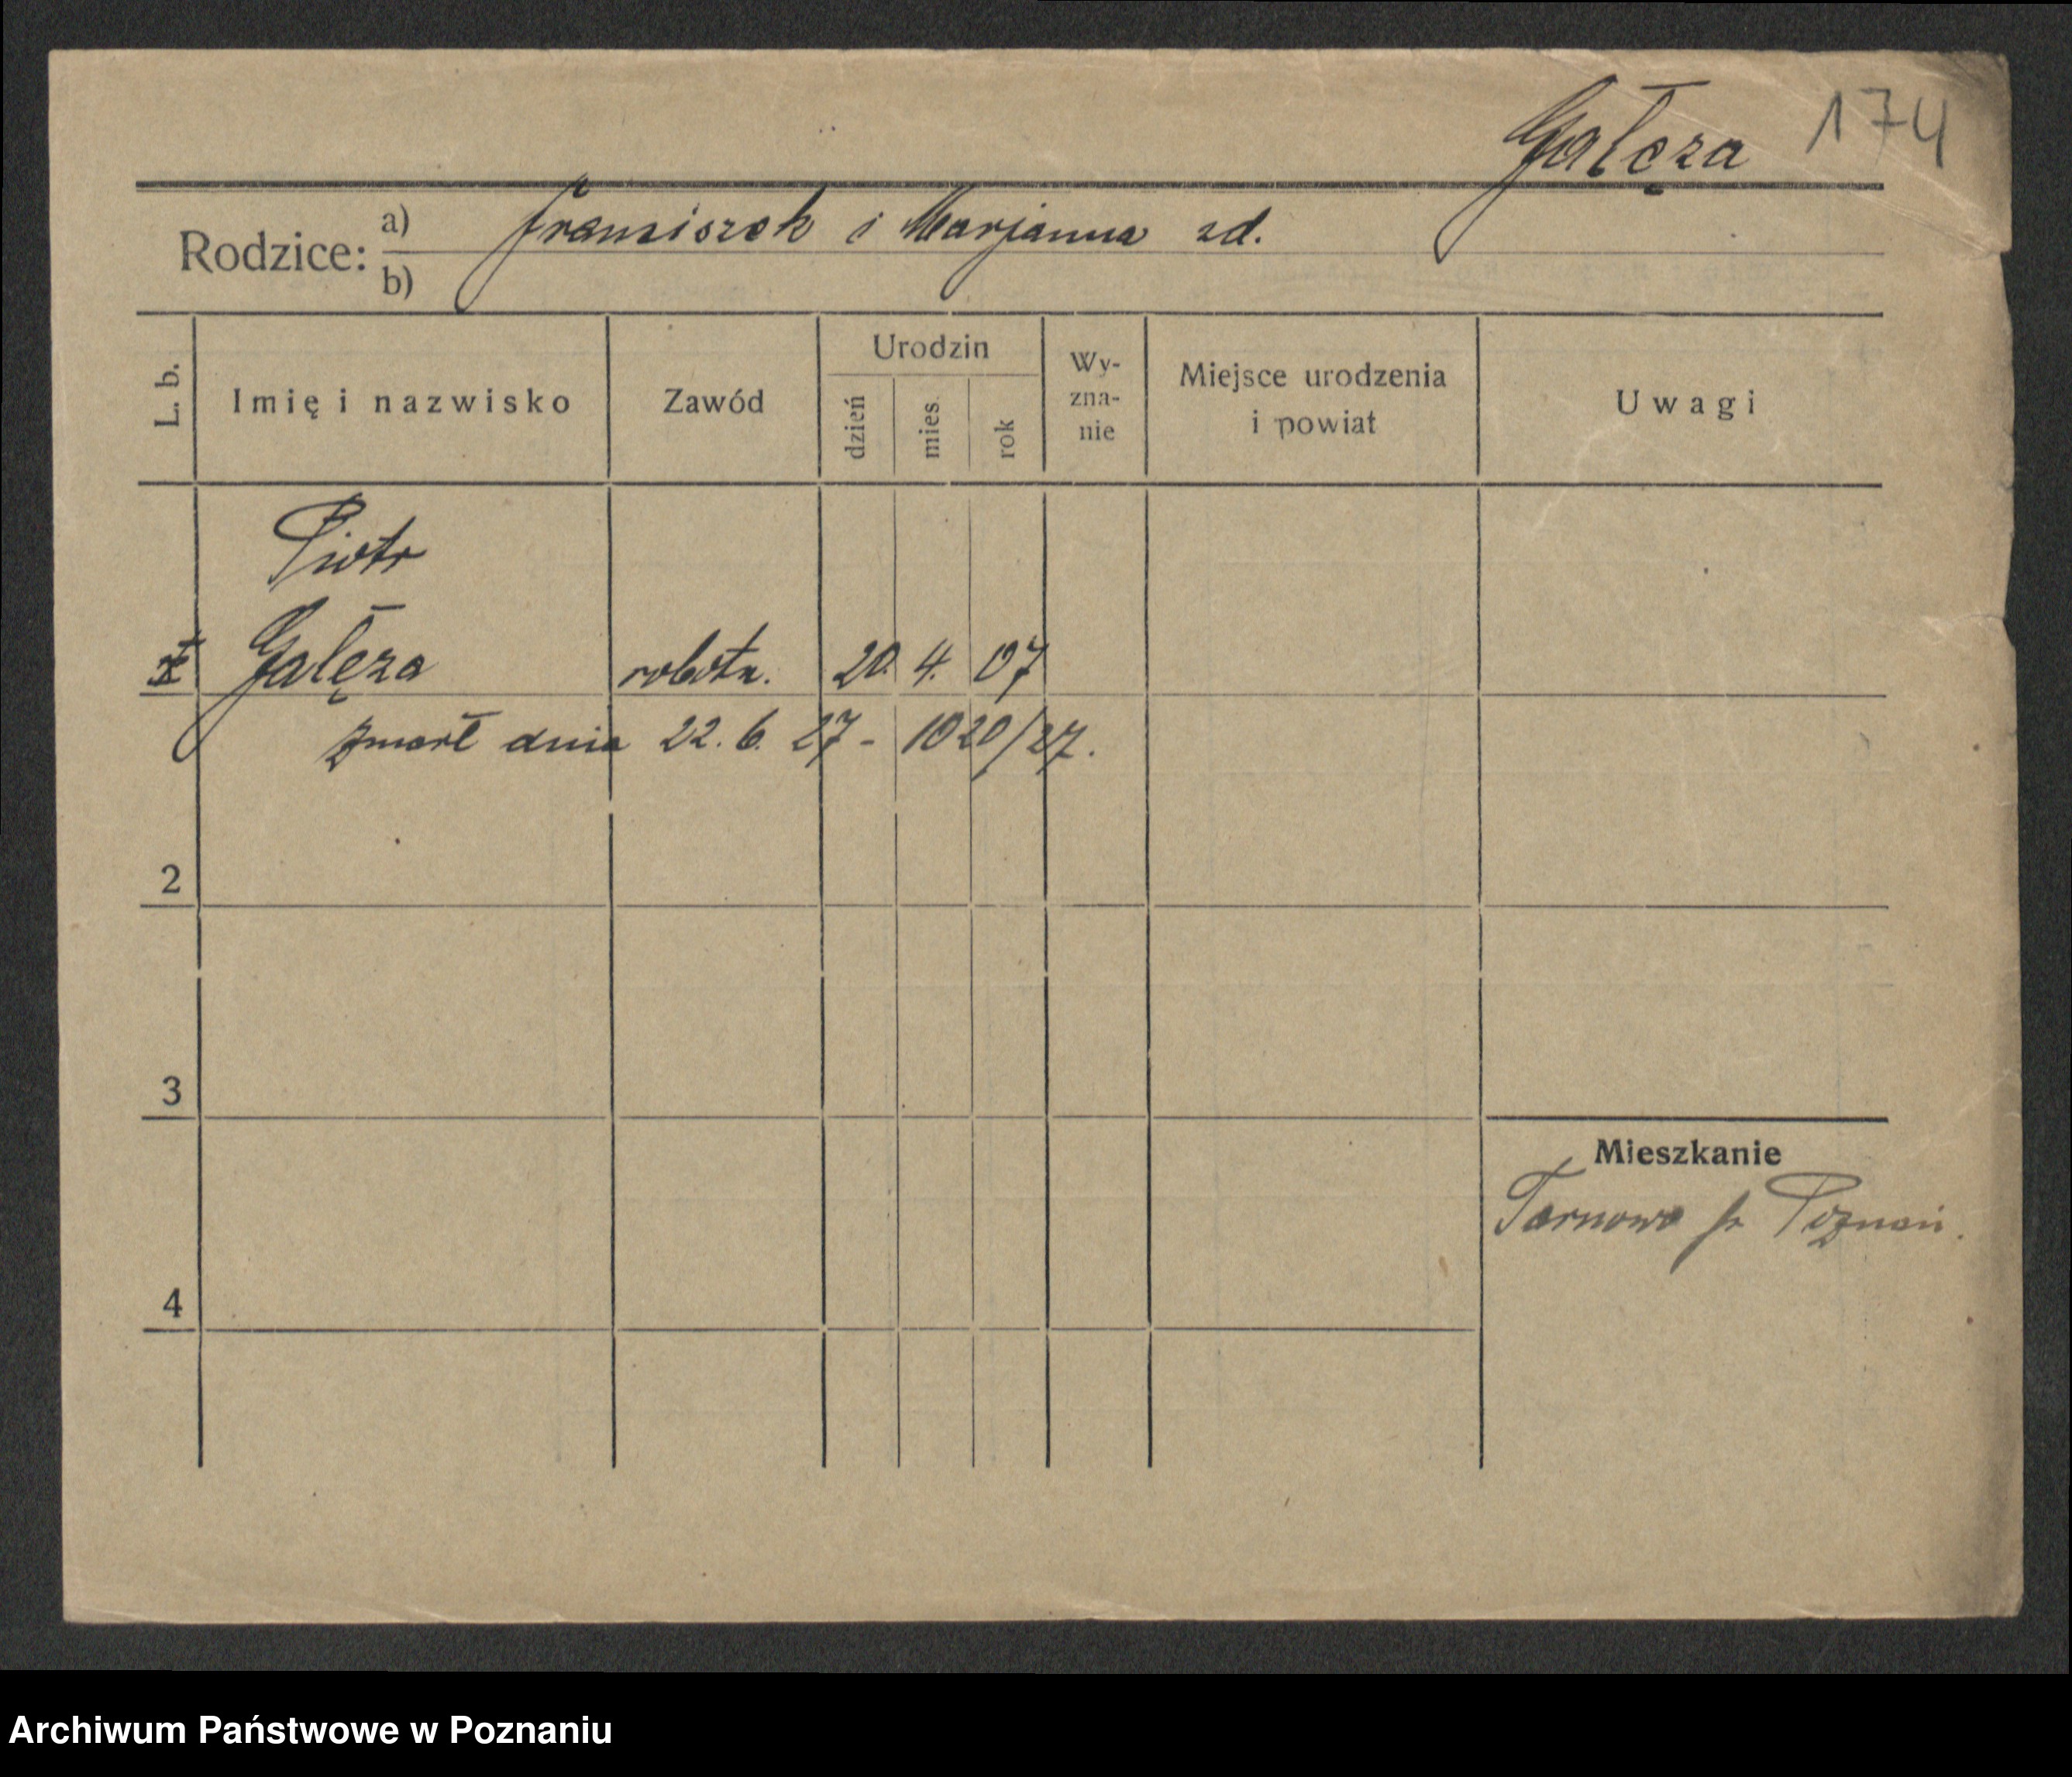 Gałęza 174
Rodzice: a) Franciszek i Marjanna zd.
b)
L. b.
Imię i nazwisko
Zawód
Urodzin
dzień
mies.
rok
Wy-
zna-
nie
Miejsce urodzenia
i powiat
Uwagi
Piotr
Gałęza robotn. 20. 4. 07
zmarł dnia 22. 6. 27 - 1020/27.
2
3
Mieszkanie
Tarnowo p. Poznań.
4
Archiwum Państwowe w Poznaniu